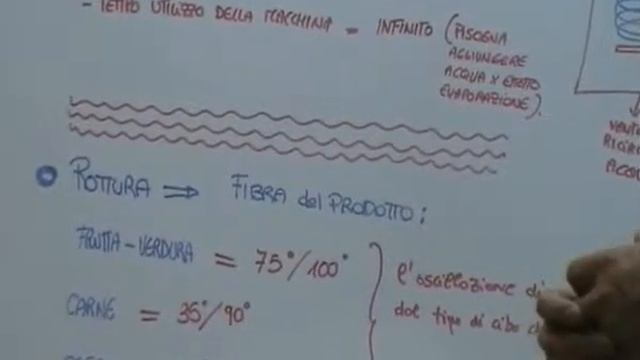 - TEMPO UTILIZZO DELLA MACCHINA = INFINITO (BISOGNA
AGGIUNGERE
ACQUA X EFFETTO
EVAPORAZIONE).
ROTTURA ⇒ FIBRA del PRODOTTO:
FRUTTA - VERDURA = 75°/100°
CARNE = 35°/90°
l'oscillazione di
dal tipo di cibo
ACQU